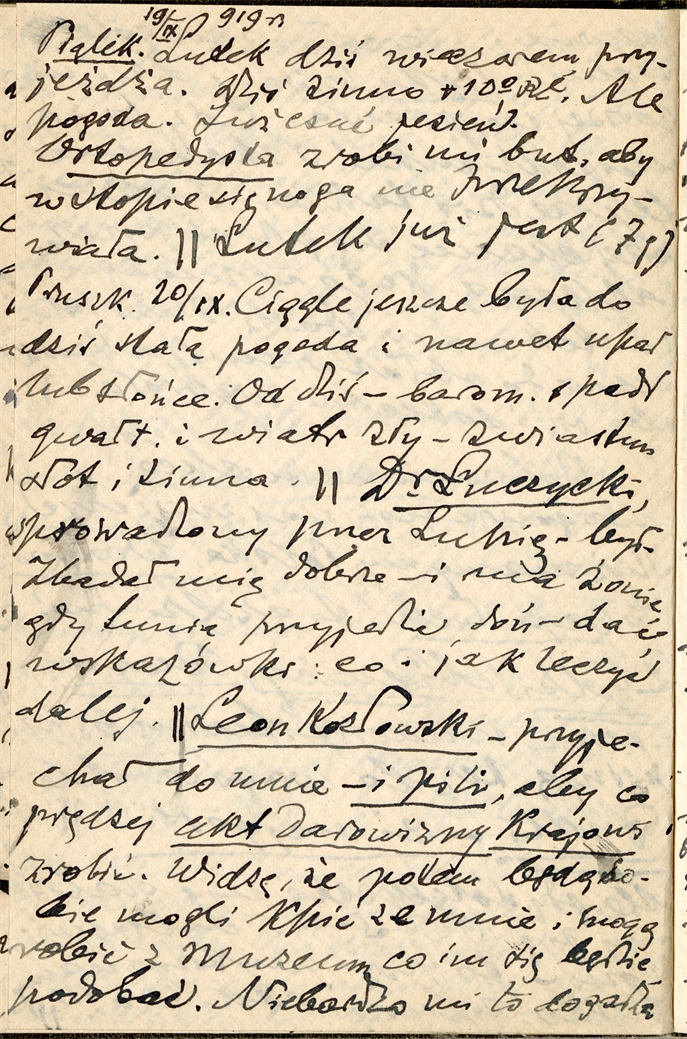 19/IX 919 r
Piątek. Lutek dziś wieczorem przy-
jeżdża. Dziś zimno +10° Re. Ale
pogoda. Już czuć jesień.
Ortopedysta zrobi mi but, aby
w stopie się noga nie przekrzy-
wiała. || Lutek już jest (7 g)
Pruszk. 20/IX. Ciągle jeszcze była do
dziś stała pogoda i nawet upał
lub słońce. Od dziś – barom. spadł
gwałt. i wiatr zły – zwiastun
słot i zimna. || Dr. Łuczycki,
sprowadzony przez – był.
Zbadał mię dobrze – i ma żonie
gdy przyjedzie doń – dać
wskazówki: co i jak leczyć
dalej. || Leon Kozłowski – przyje-
chał do mnie – i pili, aby co
prędzej akt Darowizny Krajowi
zrobić. Widzę, że potem będą so-
bie mogli kpić ze mnie i mogą
robić z Muzeum co im się będzie
podobać. Niebardzo mi to dogadza